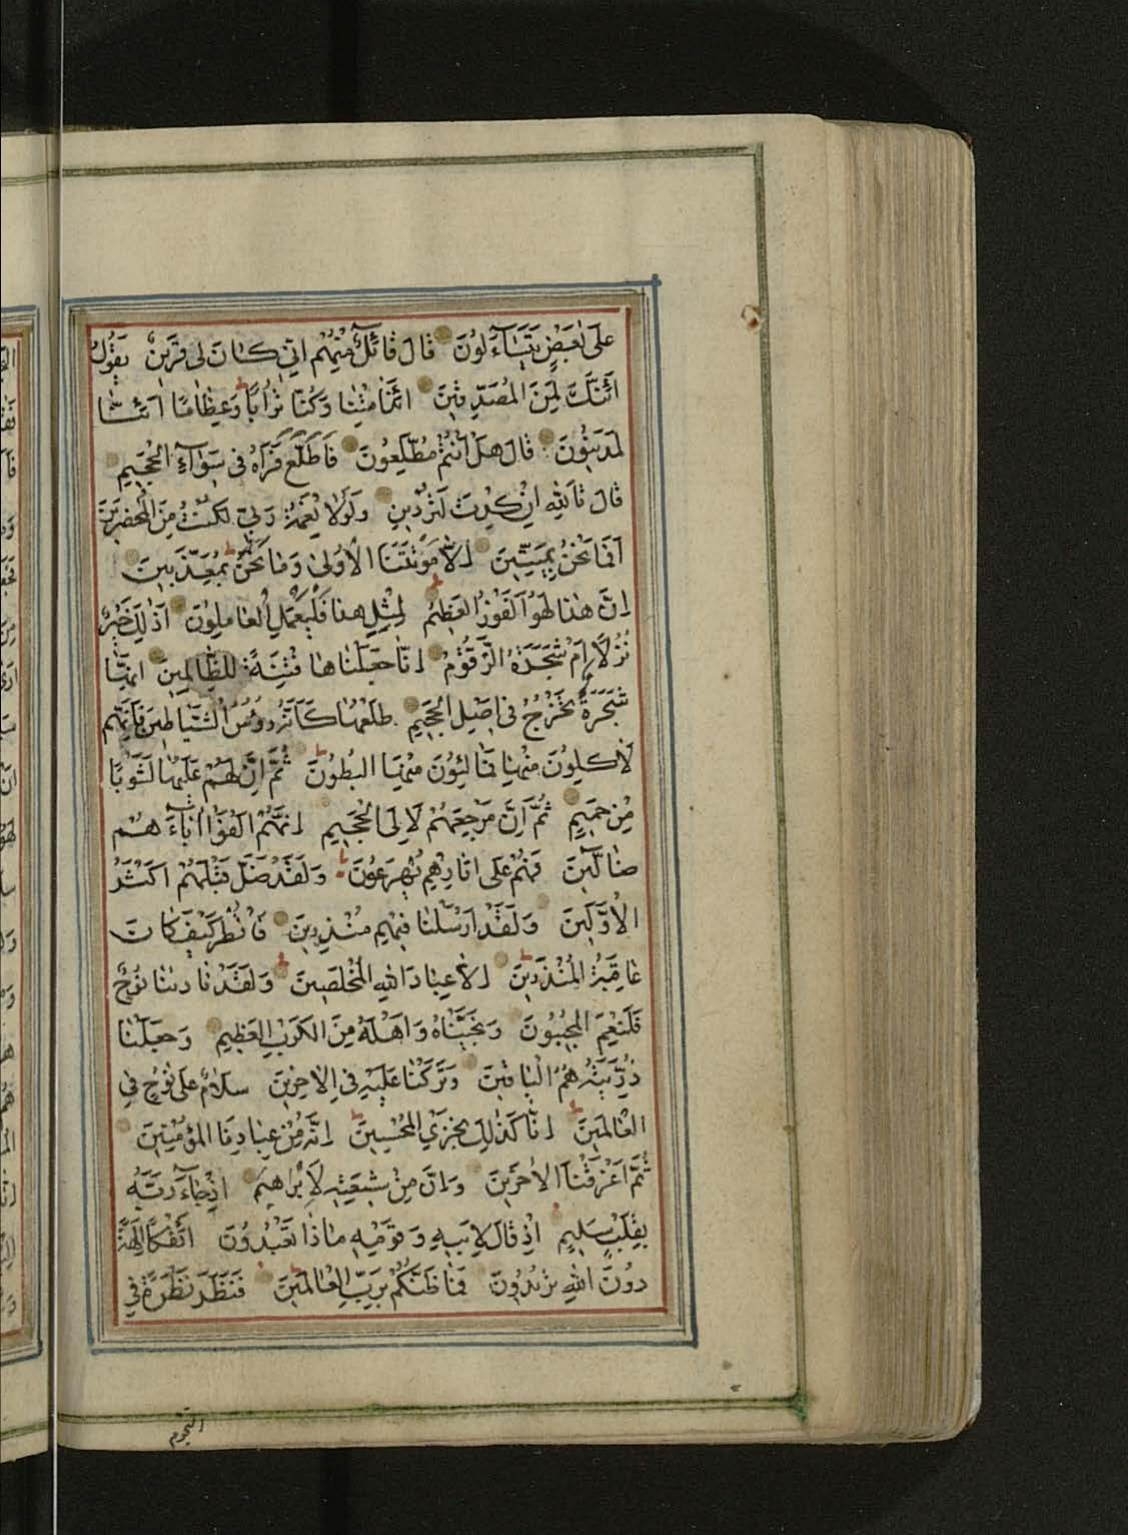 عَلَى بَعْضٍ يَتَسَآءَلُونَ قَالَ قَآئِلٌ مِنْهُمْ اِنِّي كَانَ لِي قَرِينٌ يَقُولُ
اَئِنَّكَ لَمِنَ الْمُصَدِّقِينَ ائِذَا مِتْنَا وَكُنَّا تُرَابًا وَعِظَامًا ائِنَّا
لَمَدِينُونَ قَالَ هَلْ اَنْتُمْ مُطَّلِعُونَ فَاطَّلَعَ فَرَآهُ فِي سَوَآءِ الْجَحِيمِ
قَالَ تَاللهِ اِنْ كِدْتَ لَتُرْدِينِ وَلَوْلَا نِعْمَةُ رَبِّي لَكُنْتُ مِنَ الْمُحْضَرِينَ
اَفَمَا نَحْنُ بِمَيِّتِينَ اِلَّا مَوْتَتَنَا الْاُولَى وَمَا نَحْنُ بِمُعَذَّبِينَ
اِنَّ هٰذَا لَهُوَ الْفَوْزُ الْعَظِيمُ لِمِثْلِ هٰذَا فَلْيَعْمَلِ الْعَامِلُونَ اَذٰلِكَ خَيْرٌ
نُزُلًا اَمْ شَجَرَةُ الزَّقُّومِ اِنَّا جَعَلْنَاهَا فِتْنَةً لِلظَّالِمِينَ اِنَّهَا
شَجَرَةٌ تَخْرُجُ فِي اَصْلِ الْجَحِيمِ طَلْعُهَا كَاَنَّهُ رُءُوسُ الشَّيَاطِينِ فَاِنَّهُمْ
لَآكِلُونَ مِنْهَا فَمَالِئُونَ مِنْهَا الْبُطُونَ ثُمَّ اِنَّ لَهُمْ عَلَيْهَا لَشَوْبًا
مِنْ حَمِيمٍ ثُمَّ اِنَّ مَرْجِعَهُمْ لَاِلَى الْجَحِيمِ اِنَّهُمْ اَلْفَوْا اٰبَآءَهُمْ
ضَآلِّينَ فَهُمْ عَلَى اٰثَارِهِمْ يُهْرَعُونَ وَلَقَدْ ضَلَّ قَبْلَهُمْ اَكْثَرُ
الْاَوَّلِينَ وَلَقَدْ اَرْسَلْنَا فِيهِمْ مُنْذِرِينَ فَانْظُرْ كَيْفَ كَانَ
عَاقِبَةُ الْمُنْذَرِينَ اِلَّا عِبَادَ اللهِ الْمُخْلَصِينَ وَلَقَدْ نَادٰينَا نُوحٌ
فَلَنِعْمَ الْمُجِيبُونَ وَنَجَّيْنَاهُ وَاَهْلَهُ مِنَ الْكَرْبِ الْعَظِيمِ وَجَعَلْنَا
ذُرِّيَّتَهُ هُمُ الْبَاقِينَ وَتَرَكْنَا عَلَيْهِ فِي الْاٰخِرِينَ سَلَامٌ عَلَى نُوحٍ فِي
الْعَالَمِينَ اِنَّا كَذٰلِكَ نَجْزِي الْمُحْسِنِينَ اِنَّهُ مِنْ عِبَادِنَا الْمُؤْمِنِينَ
ثُمَّ اَغْرَقْنَا الْاٰخَرِينَ وَاِنَّ مِنْ شِيعَتِهِ لَاِبْرَاهِيمَ اِذْ جَآءَ رَبَّهُ
بِقَلْبٍ سَلِيمٍ اِذْ قَالَ لِاَبِيهِ وَقَوْمِهِ مَاذَا تَعْبُدُونَ اَئِفْكًا اٰلِهَةً
دُونَ اللهِ تُرِيدُونَ فَمَا ظَنُّكُمْ بِرَبِّ الْعَالَمِينَ فَنَظَرَ نَظْرَةً فِي
النجوم